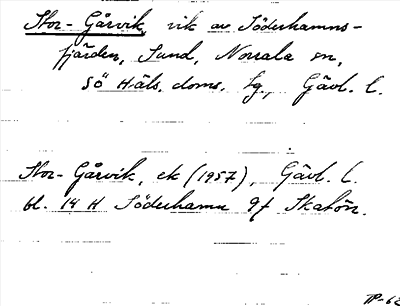 Stor-Gårvik, vik av Söderhamns-
fjärden, Sund, Norrala sn,
Sö Häls. doms. tg, Gävl. l.
Stor-Gårvik, ek (1957), Gävl. l.
bl. 14 H Söderhamn 9f Skatön.
TP-62